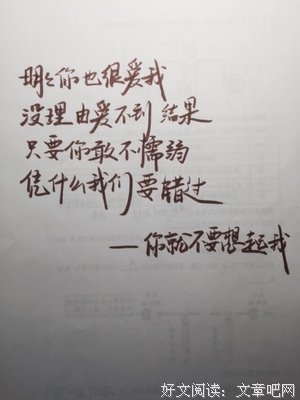 明明你也很爱我
没理由爱不到结果
只要你敢不懦弱
凭什么我们要错过
—你就不要想起我
好文阅读：文章吧网